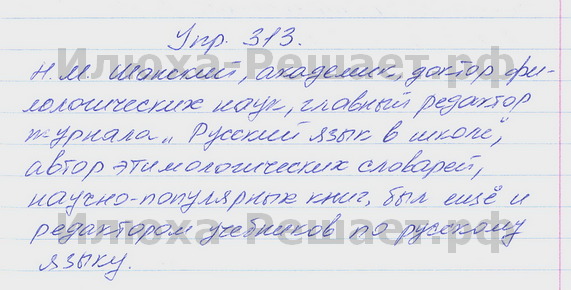 Упр. 313.
Илюха-Решает.рф
Н.М. Шанский, академик, доктор фи-
лологических наук, главный редактор
журнала „Русский язык в школе",
автор этимологических словарей,
научно-популярных книг, был ещё и
редактором учебников по русскому
Илюха-Решает.рф
языку.